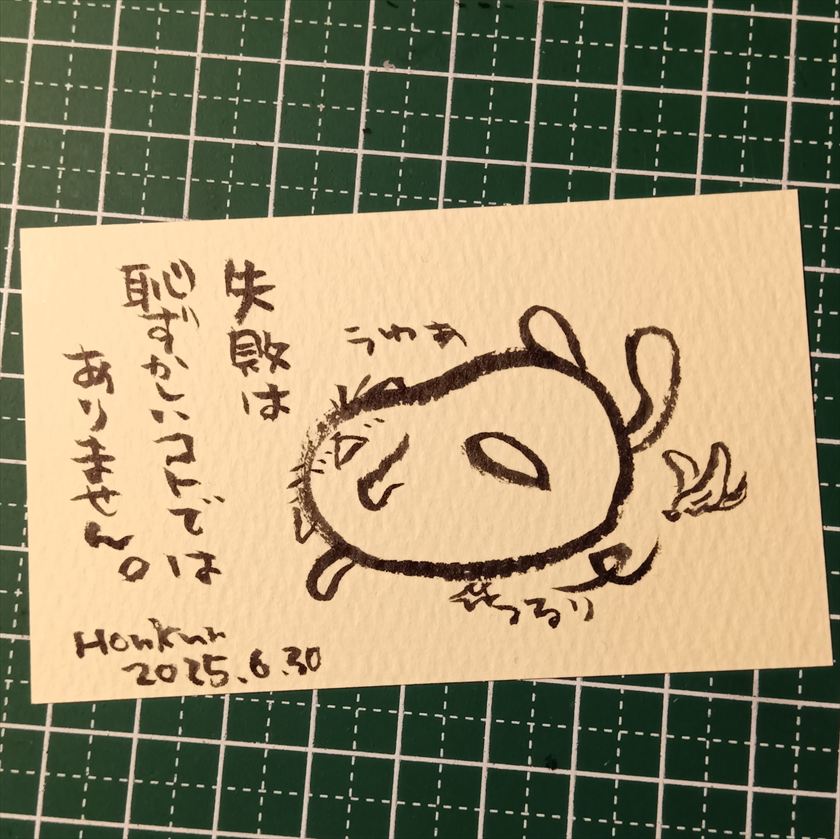 失敗は
恥ずかしいコトでは
ありません。
うわぁ
つるり
Honkun
2025.6.30